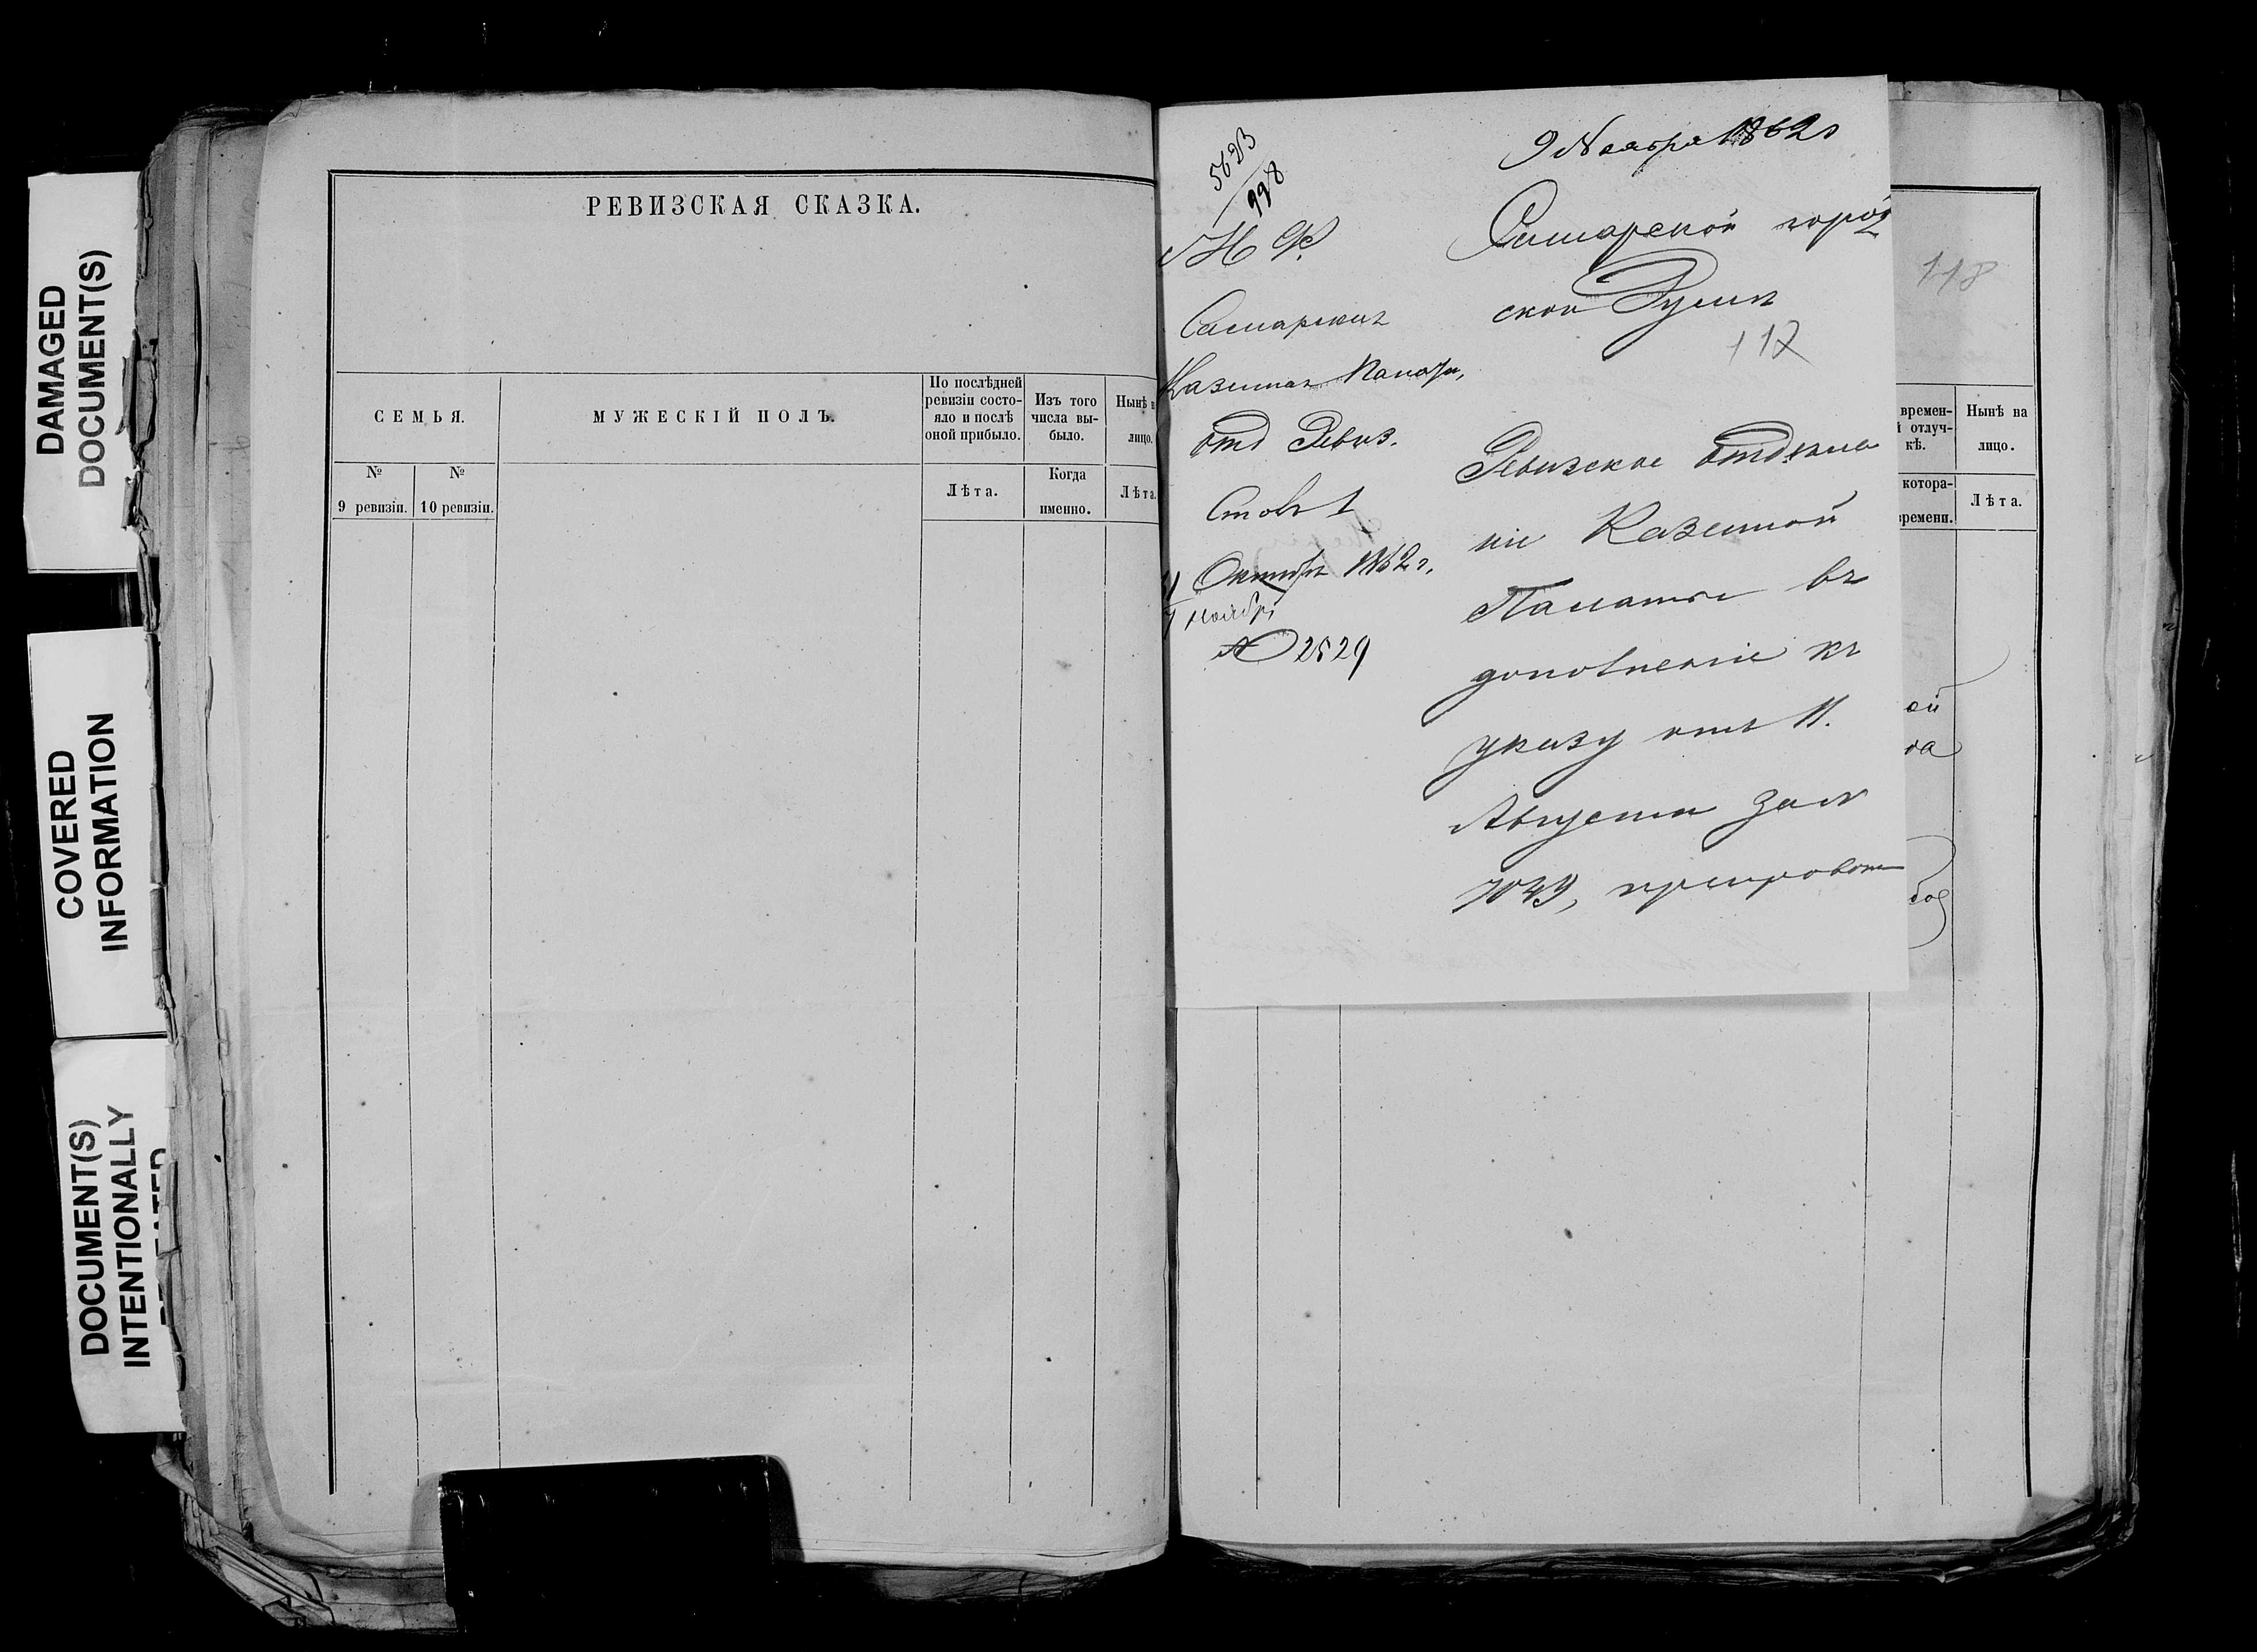 DAMAGED
DOCUMENT(S)
COVERED
INFORMATION
DOCUMENT(S)
INTENTIONALLY
РЕВИЗСКАЯ СКАЗКА.
СЕМЬЯ.
МУЖЕСКІЙ ПОЛЪ.
По послѣдней
ревизіи состо-
яло и послѣ
оной прибыло.
Изъ того
числа вы-
было.
Нынѣ н
лицо.
№
9 ревизіи.
№
10 ревизіи.
Лѣта.
Когда
именно.
Лѣта.
5623
998
М Ф.
Самарская
Казенная Палата,
отд Ревиз.
Столъ 1
31 Октября 1862 г.
7 Ноября
№ 2529
9 Ноября 1862 г
Самарской город
ской Думѣ
112
Ревизское отдѣле
ніе Казенной
Палаты въ
дополненіе къ
указу отъ 11.
Августа за №
7049, препровож
118
времен-
й отлуч-
кѣ.
Нынѣ на
лицо.
котора-
времени.
Лѣта.
ой